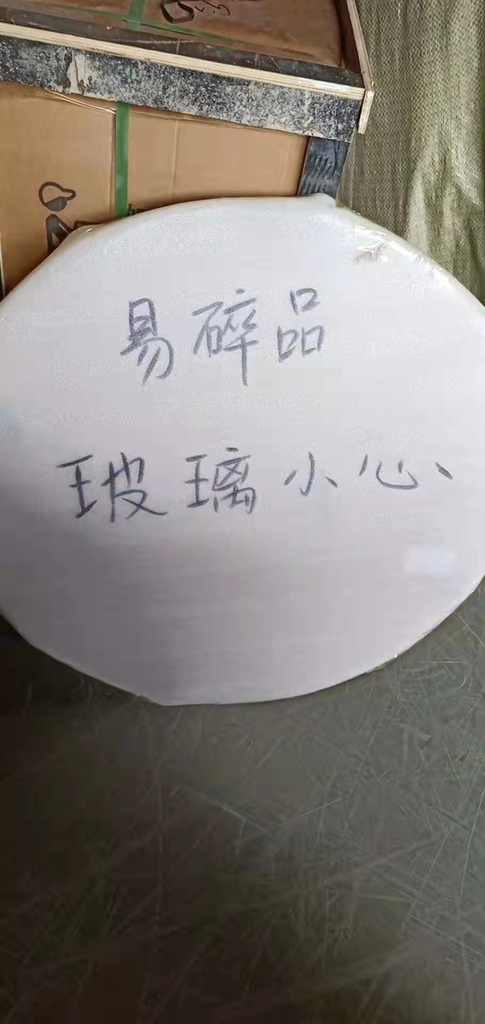 易碎品
玻璃小心